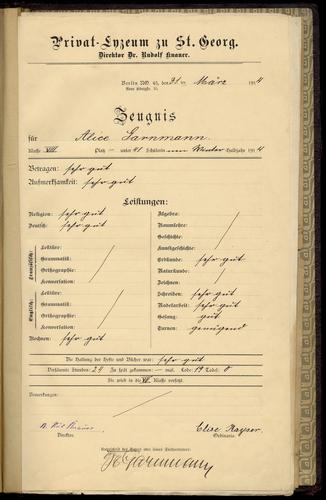 Privat-Lyzeum zu St. Georg.
Direktor Dr. Rudolf Knauer.
Berlin NO. 43, den 31. ten März 1914
Neue Königstr.
Zeugnis
für Alice Sarnmann.
Klasse VIII Platz — unter 41 Schülerinnen Winter-Halbjahr 1914
Betragen: sehr gut
Aufmerksamkeit: sehr gut
Leistungen:
Religion: sehr gut
Deutsch: sehr gut
Französisch:
Lektüre:
Grammatik:
Orthographie:
Konversation:
Englisch:
Lektüre:
Grammatik:
Orthographie:
Konversation:
Rechnen: sehr gut
Algebra:
Raumlehre:
Geschichte:
Kunstgeschichte:
Erdkunde: sehr gut
Naturkunde:
Zeichnen:
Schreiben: sehr gut
Nadelarbeit: sehr gut
Gesang: gut
Turnen: genügend
Die Haltung der Hefte und Bücher war: sehr gut
Versäumte Stunden: 24 Zu spät gekommen — mal. Lobe: 19 Tadel: 0
Sie wird in die VII. Klasse versetzt.
Bemerkungen:
Direktor.
Elise Kayser
Ordinaria.
Unterschrift des Vaters oder seines Stellvertreters: